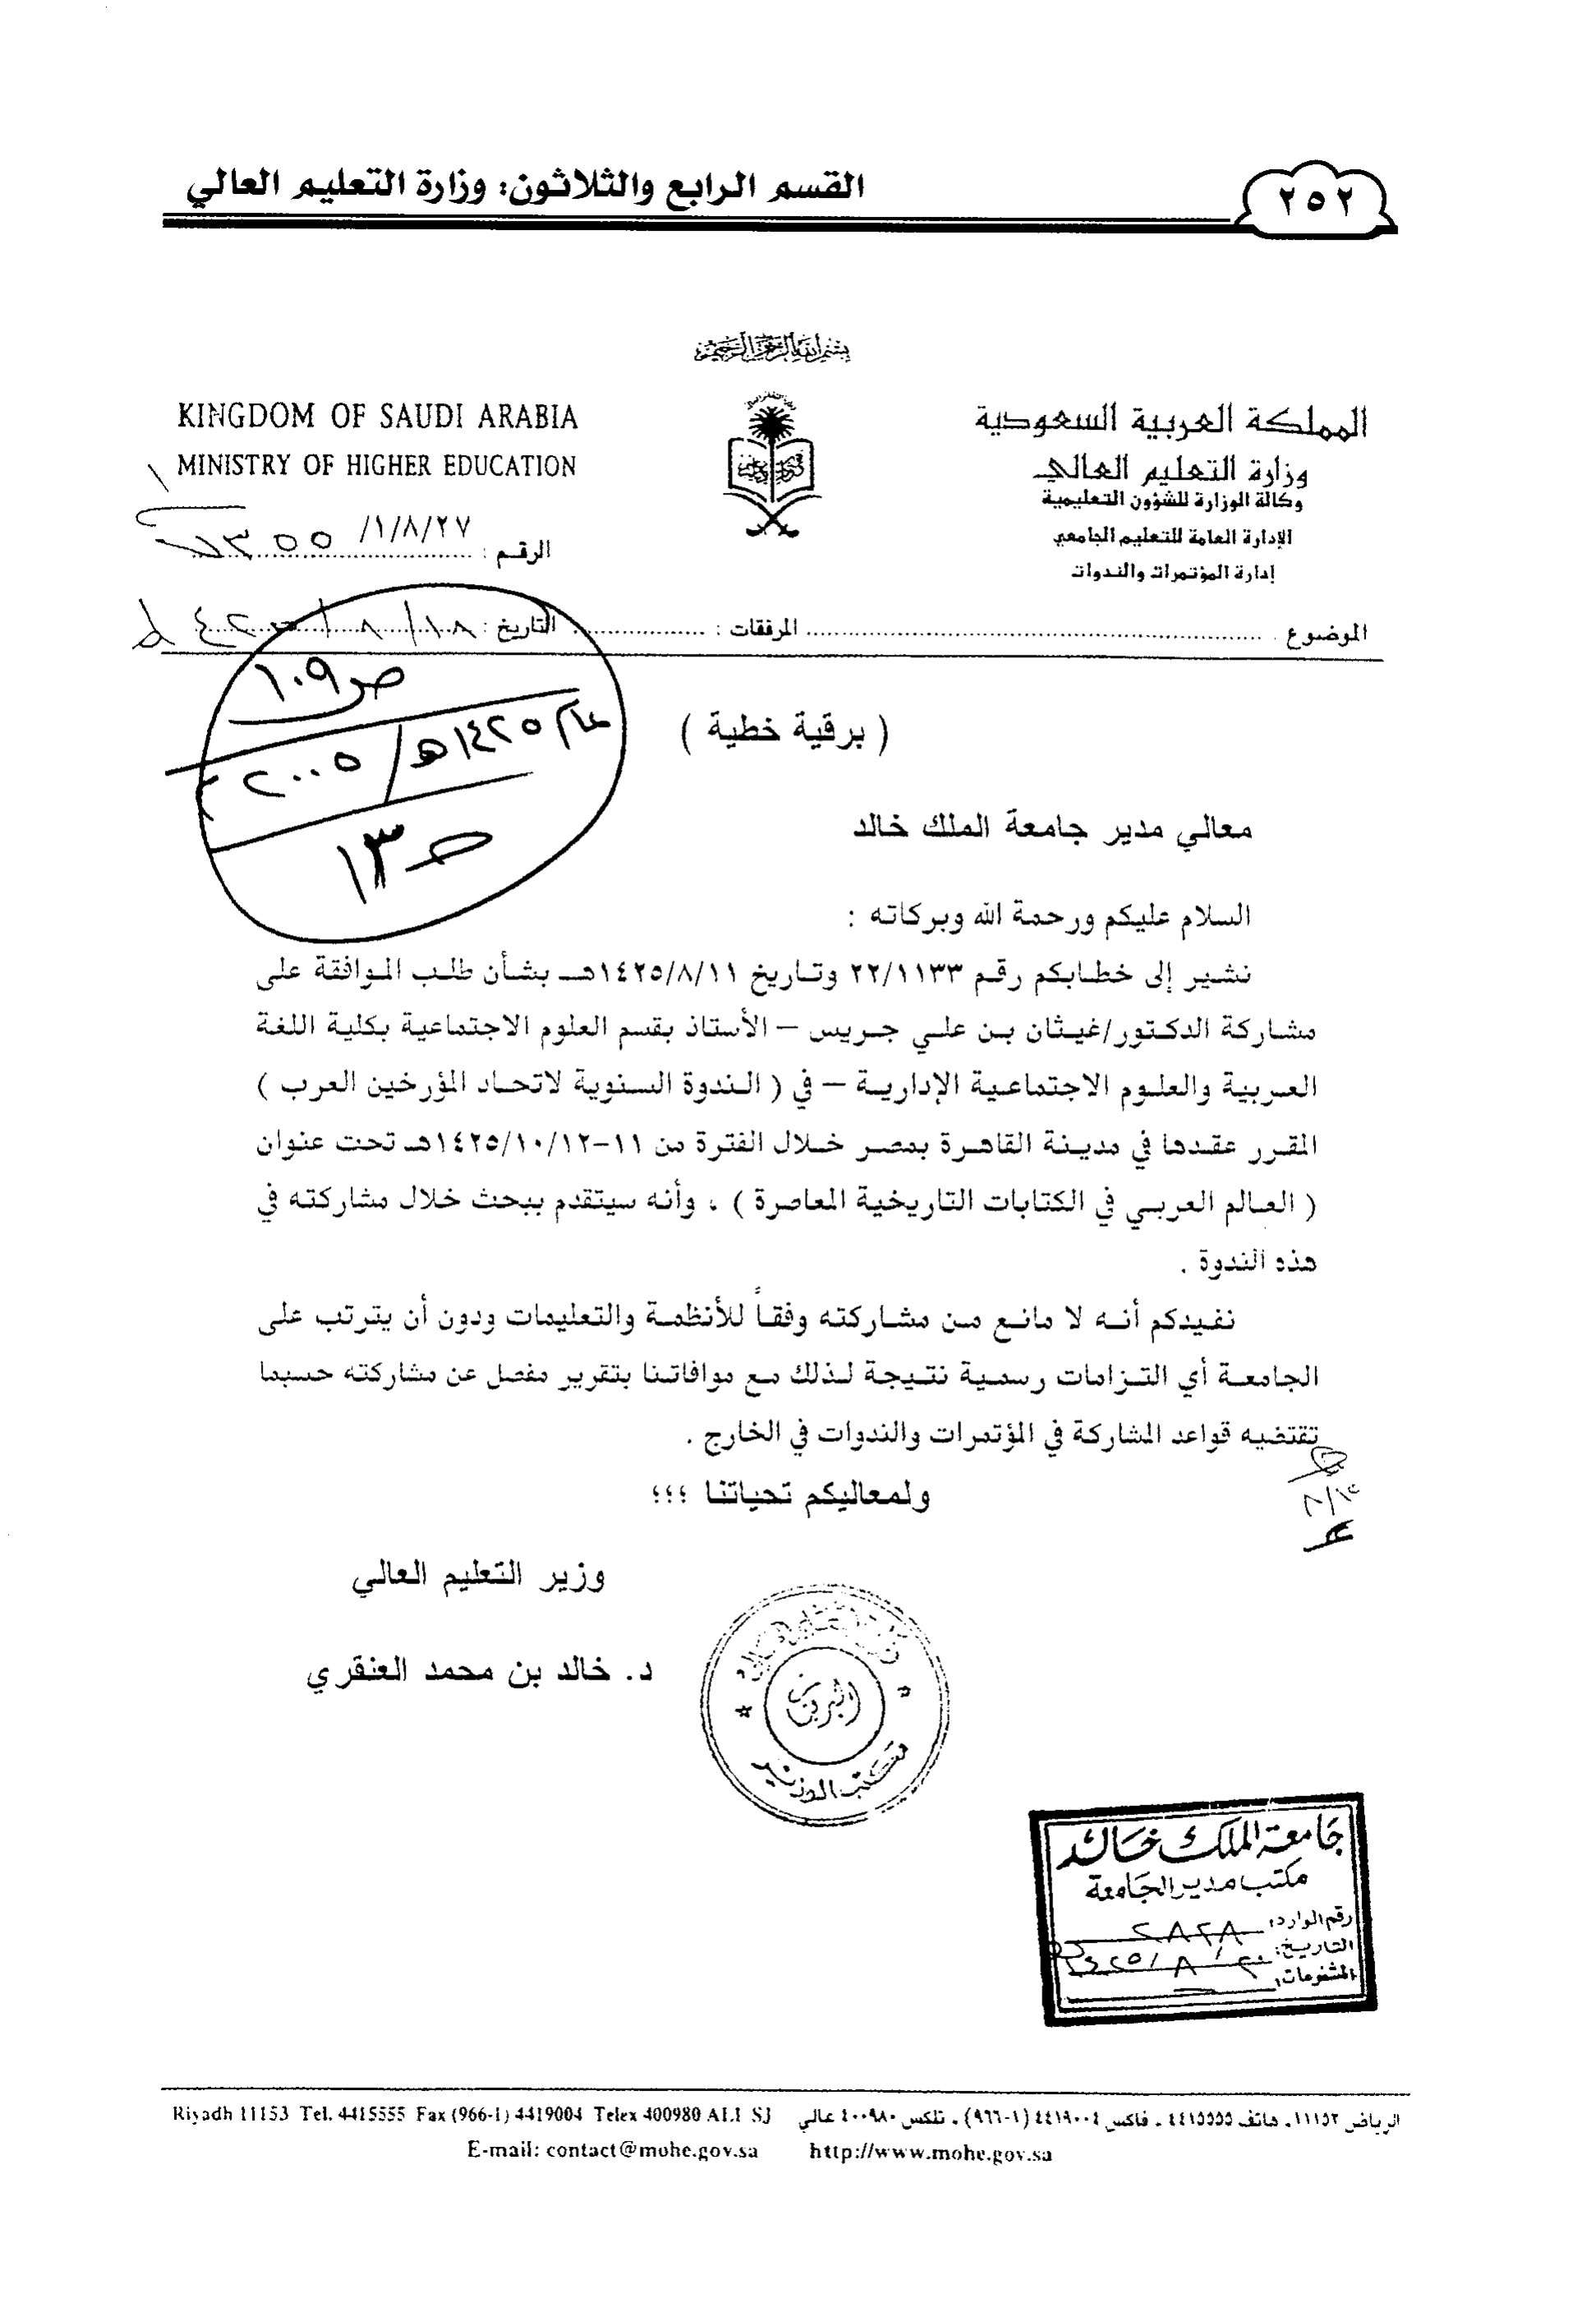 القسم الرابع والثلاثون: وزارة التعليم العالي
٢٥٢
بسم الله الرحمن الرحيم
KINGDOM OF SAUDI ARABIA
MINISTRY OF HIGHER EDUCATION
المملكة العربية السعودية
وزارة التعليم العالي
وكالة الوزارة للشؤون التعليمية
الإدارة العامة للتعليم الجامعي
إدارة المؤتمرات والندوات
الرقم : ١/٨/٢٧/
الموضوع المرفقات : التاريخ : ١٨/ ٨/
ص ١٠٩
عام ١٤٢٥هـ/ ٢٠٠٥
ص ١٣
( برقية خطية )
معالي مدير جامعة الملك خالد
السلام عليكم ورحمة الله وبركاته :
نشير إلى خطابكم رقم ٢٢/١١٣٣ وتاريخ ١٤٢٥/٨/١١هـ بشأن طلب الموافقة على
مشاركة الدكتور/غيثان بن علي جريس – الأستاذ بقسم العلوم الاجتماعية بكلية اللغة
العربية والعلوم الاجتماعية الإدارية – في ( الندوة السنوية لاتحاد المؤرخين العرب )
المقرر عقدها في مدينة القاهرة بمصر خلال الفترة من ١١-١٤٢٥/١٠/١٢هـ تحت عنوان
( العالم العربي في الكتابات التاريخية المعاصرة ) ، وأنه سيتقدم ببحث خلال مشاركته في
هذه الندوة .
نفيدكم أنه لا مانع من مشاركته وفقاً للأنظمة والتعليمات ودون أن يترتب على
الجامعة أي التزامات رسمية نتيجة لذلك مع موافاتنا بتقرير مفصل عن مشاركته حسبما
تقتضيه قواعد المشاركة في المؤتمرات والندوات في الخارج .
ولمعاليكم تحياتنا ؛؛؛
وزير التعليم العالي
د. خالد بن محمد العنقري
مكتب الوزير
جامعة الملك خالد
مكتب مدير الجامعة
رقم الوارد: ٢٨٢٨
التاريخ: ٢٠/ ٨ /١٤٢٥
المشفوعات:
Riyadh 11153 Tel. 4415555 Fax (966-1) 4419004 Telex 400980 ALI SJ
الرياض ١١١٥٣، هاتف ٤٤١٥٥٥٥ ، فاكس ٤٤١٩٠٠٤ (١-٩٦٦) ، تلكس ٤٠٠٩٨٠ عالي
E-mail: contact@mohe.gov.sa http://www.mohe.gov.sa